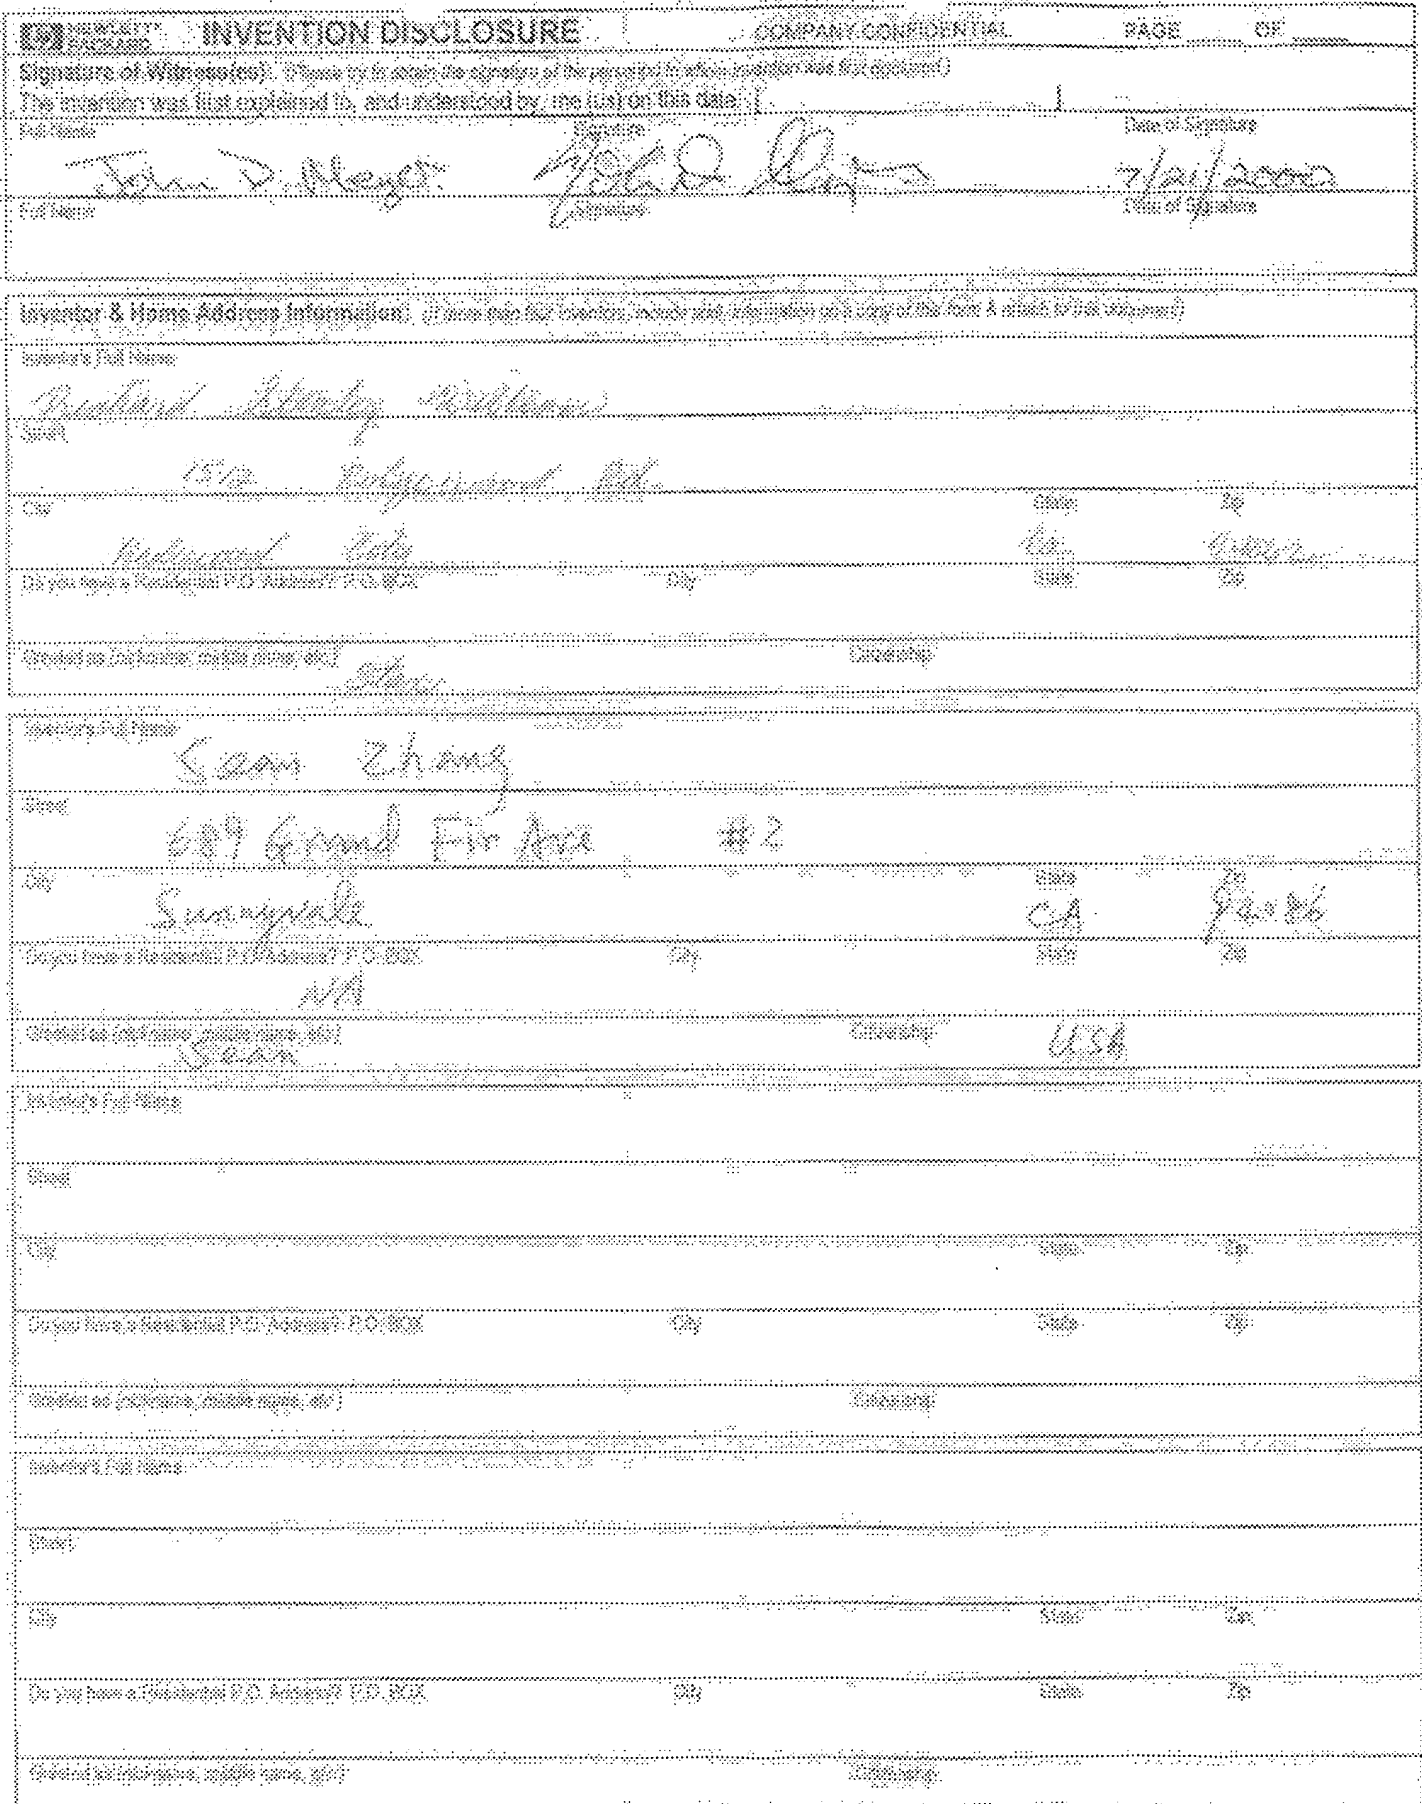 hp HEWLETT PACKARD INVENTION DISCLOSURE COMPANY CONFIDENTIAL PAGE ____ OF ____
Signature of Witness(es): (Please try to obtain the signature of the person(s) to whom invention was first explained.)
The invention was first explained to, and understood by, me (us) on this date: [ ]
Full Name Signature Date of Signature
John D. 7/21/2000
Full Name Signature Date of Signature
Inventor & Home Address Information: (If more than four inventors, include add. information on a copy of this form & attach to this document)
Inventor's Full Name
Stanley
Street
Rd.
City State Zip
Redwood City Ca.
Do you have a Residential P.O. Address? P.O. BOX City State Zip
Greeted as (nickname, middle name, etc.) Citizenship
Inventor's Full Name
Sean Zhang
Street
689 Grand Fir Ave #2
City State Zip
Sunnyvale CA 94086
Do you have a Residential P.O. Address? P.O. BOX City State Zip
N/A
Greeted as (nickname, middle name, etc.) Citizenship
Sean USA
Inventor's Full Name
Street
City State Zip
Do you have a Residential P.O. Address? P.O. BOX City State Zip
Greeted as (nickname, middle name, etc.) Citizenship
Inventor's Full Name
Street
City State Zip
Do you have a Residential P.O. Address? P.O. BOX City State Zip
Greeted as (nickname, middle name, etc.) Citizenship